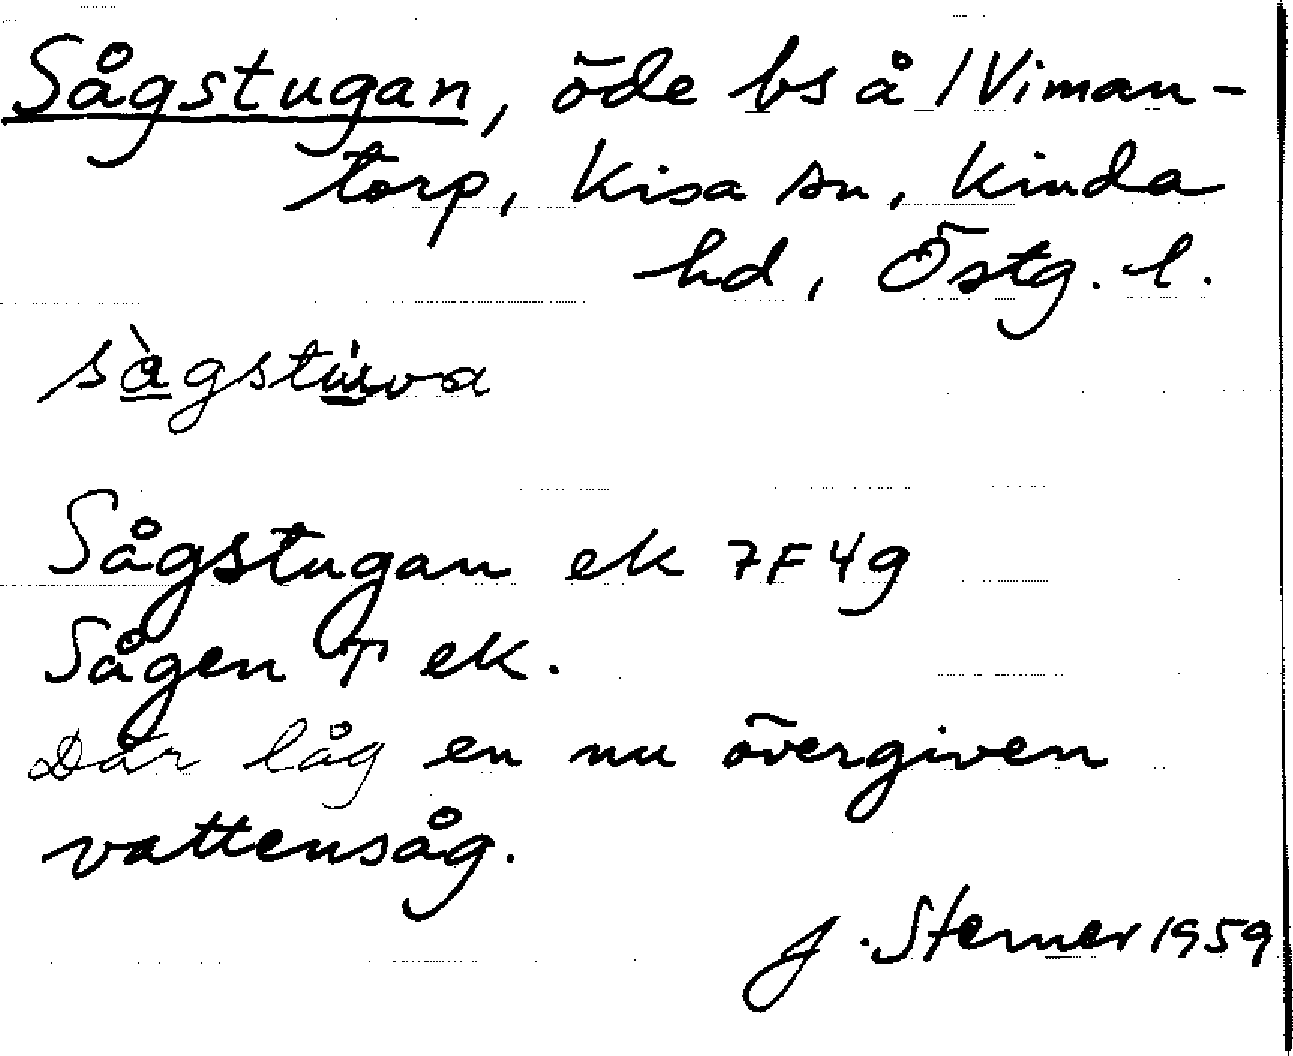 Sågstugan, öde bs å /Viman-
torp, Kisa sn, Kinda
hd, Östg. l.
sàgstu̇va
Sågstugan ek 7F4g
Sågen T ek.
Där låg en nu övergiven
vattensåg.
J. Sterner 1959